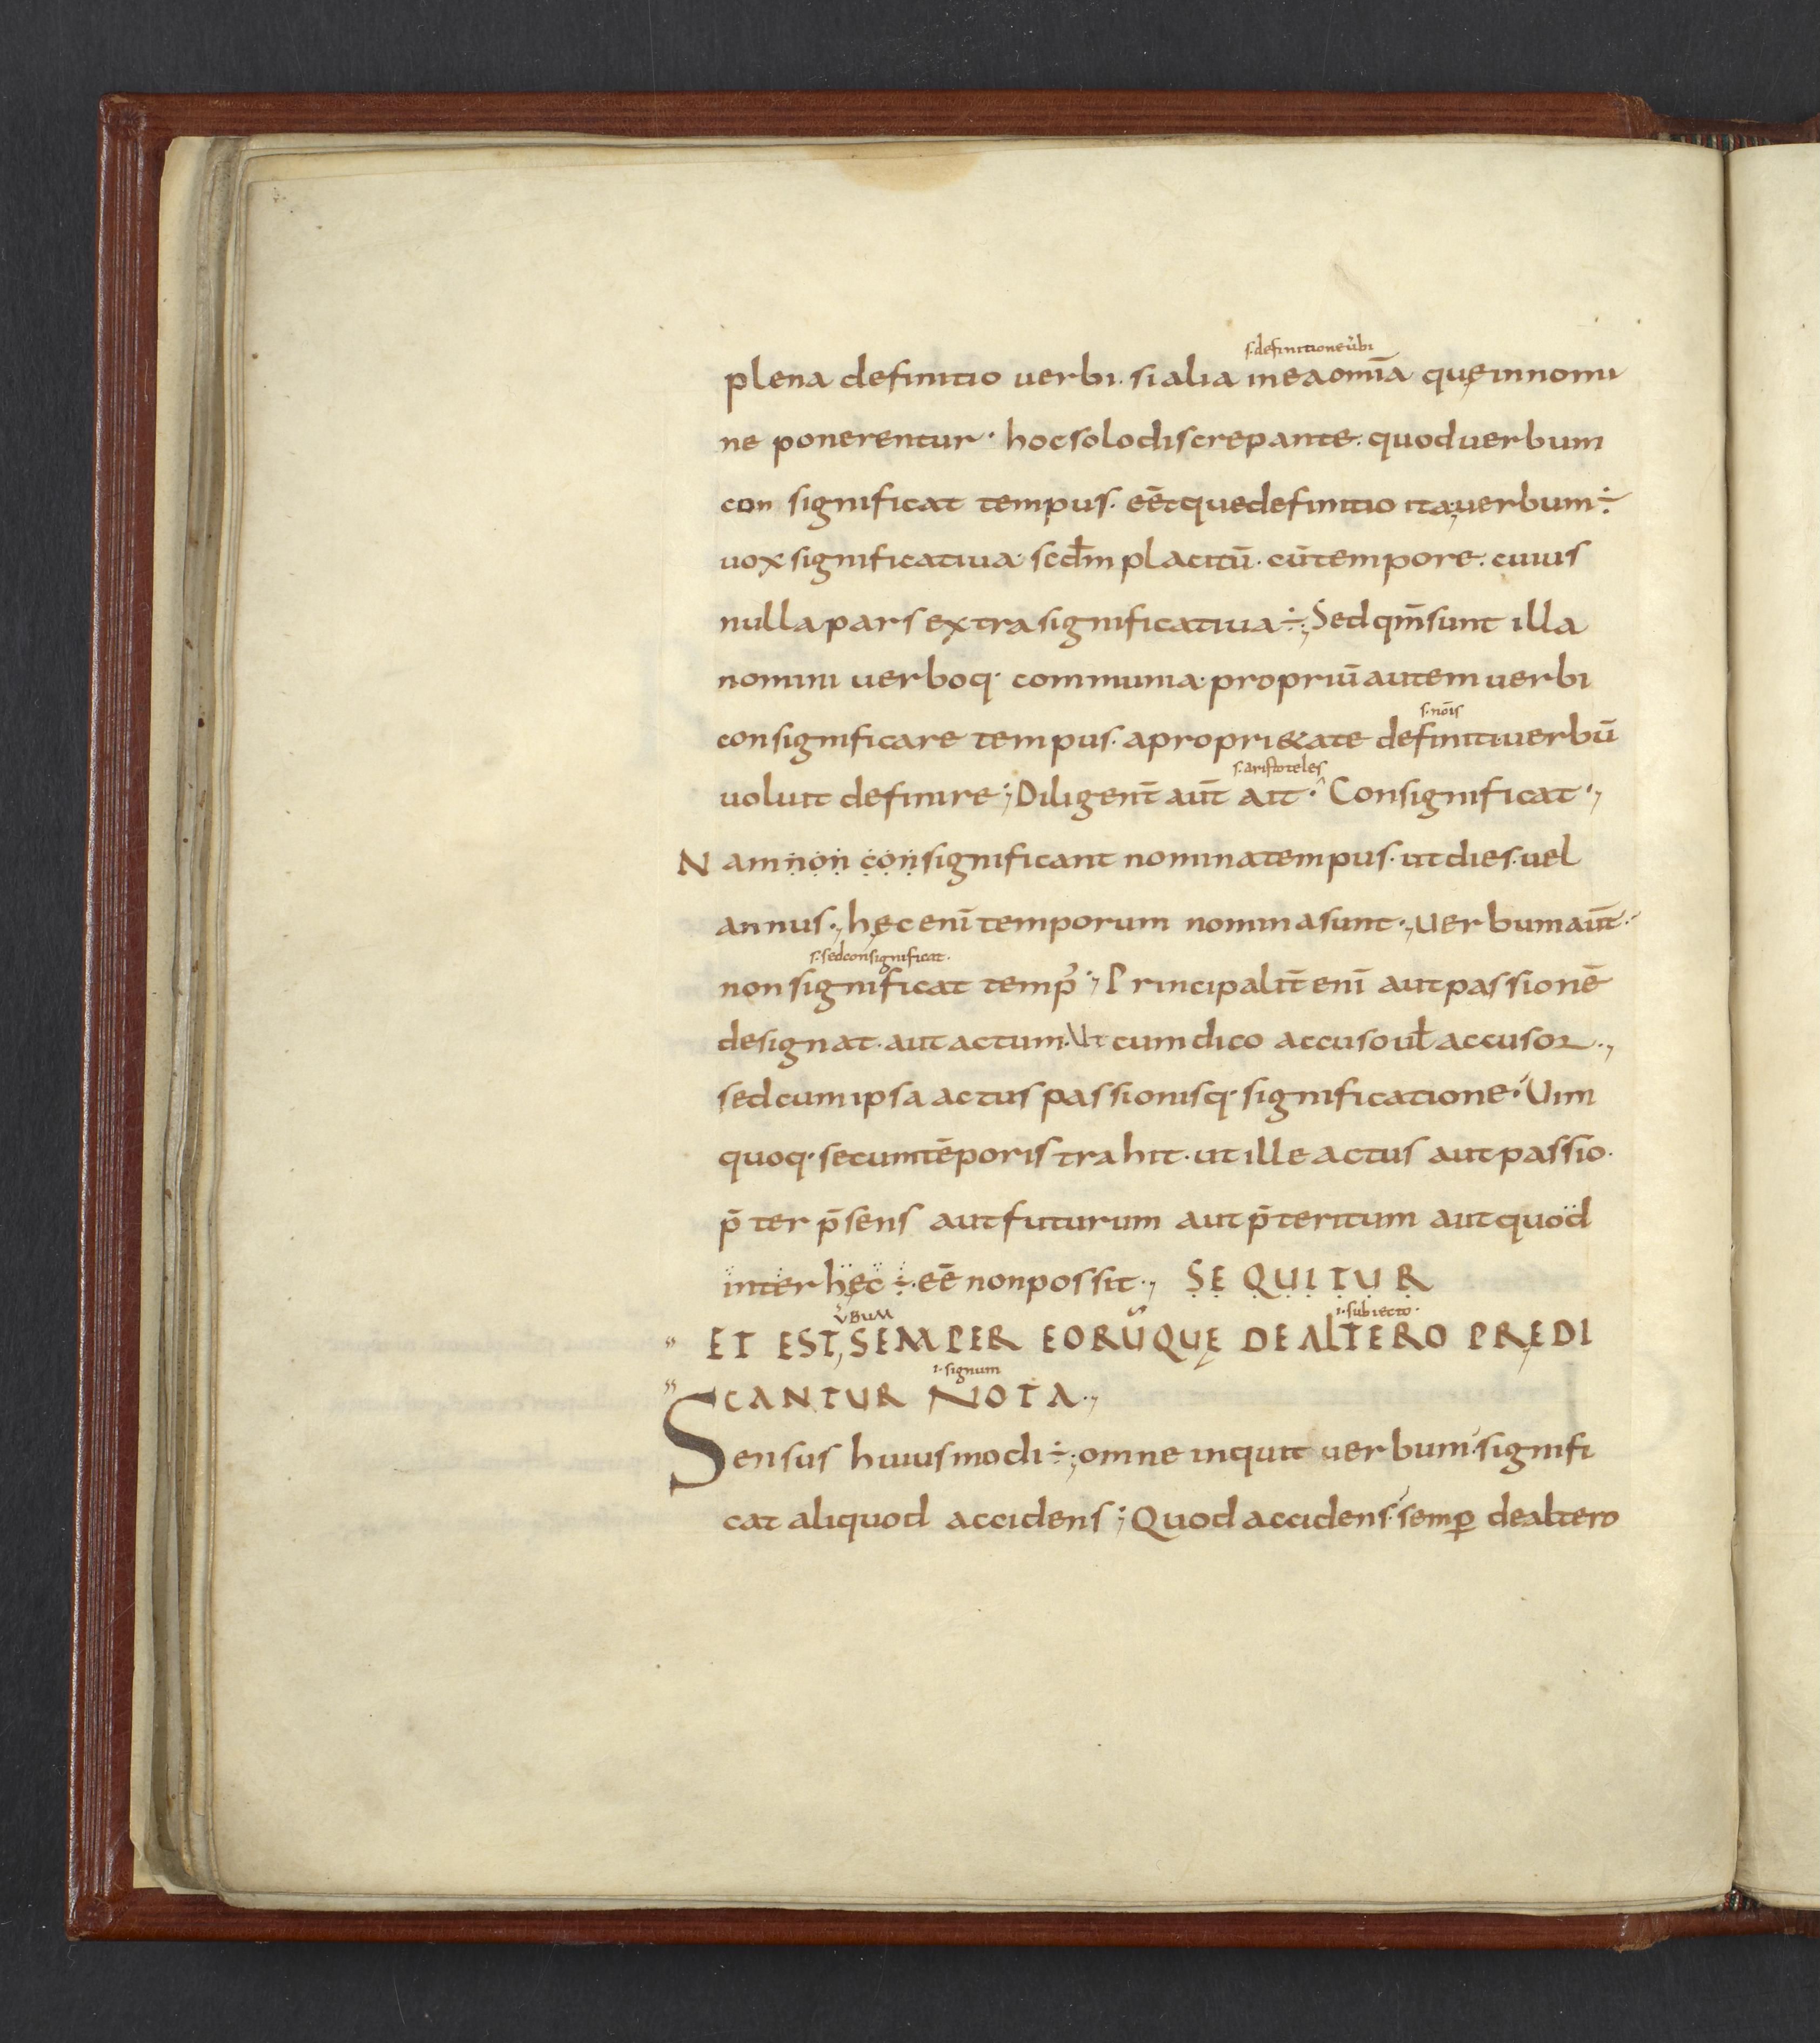 s. definitione ůbi
plena definitio uerbi. si alia in ea om̄ia quę in nomi
ne ponerentur. hoc solo discrepante. quod uerbum
con significat tempus. eēt que definitio ita; uerbum ÷
uox significatiua sec̄dm placitū. cū tempore. cuius
nulla pars extra significatiua ÷; Sed qm̄ sunt illa
nomini uerboq· communia. propriū autem uerbi
s. nōis
consignificare tempus. a propri&ate definiti uerbū
s. aristoteles
uoluit definire; Diligent̄ aūt ait. Consignificat.,
Nam non consignificant nomina tempus. ut dies. uel
annus., hęc enī temporum nomina sunt., uerbum aūt.
s. sed consignificat.
non significat temp᾽., Principalit̄ enī aut passionē
designat. aut actum. Ut cum dico accuso ul̄ accusor.,
sed cum ipsa actus passionisq· significatione. Uim
quoq· secum tēporis trahit. ut ille actus aut passio.
p̄ter p̄sens aut futurum aut p̄teritum aut quod
inter hęc ÷. eē non possit., SEQUITUR
ůBUM i. subiecto.
" ET EST, SEMPER EORŪ QUĘ DE ALTERO PRĘDI
i. signum
" CANTUR NOTA.,
Sensus huiusmodi ÷; omne inquit uerbum. signifi
cat aliquod accidens; Quod accidens. semp̱ de altero